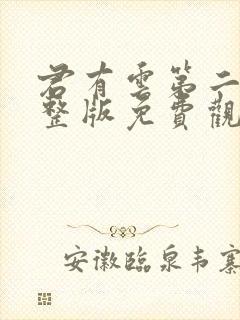 君有雲第二
整版免費觀
安徽臨泉韦寨